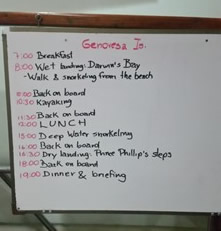 Genovesa Is.
7:00 Breakfast
8:00 Wet landing: Darwin's Bay
- Walk & snorkeling from the beach
Back on board
10:30 Kayaking
11:30 Back on board
12:00 LUNCH
15:00 Deep Water snorkeling
16:00 Back on board
16:30 Dry landing: Prince Phillip's steps
18:00 Back on board
19:00 Dinner & briefing